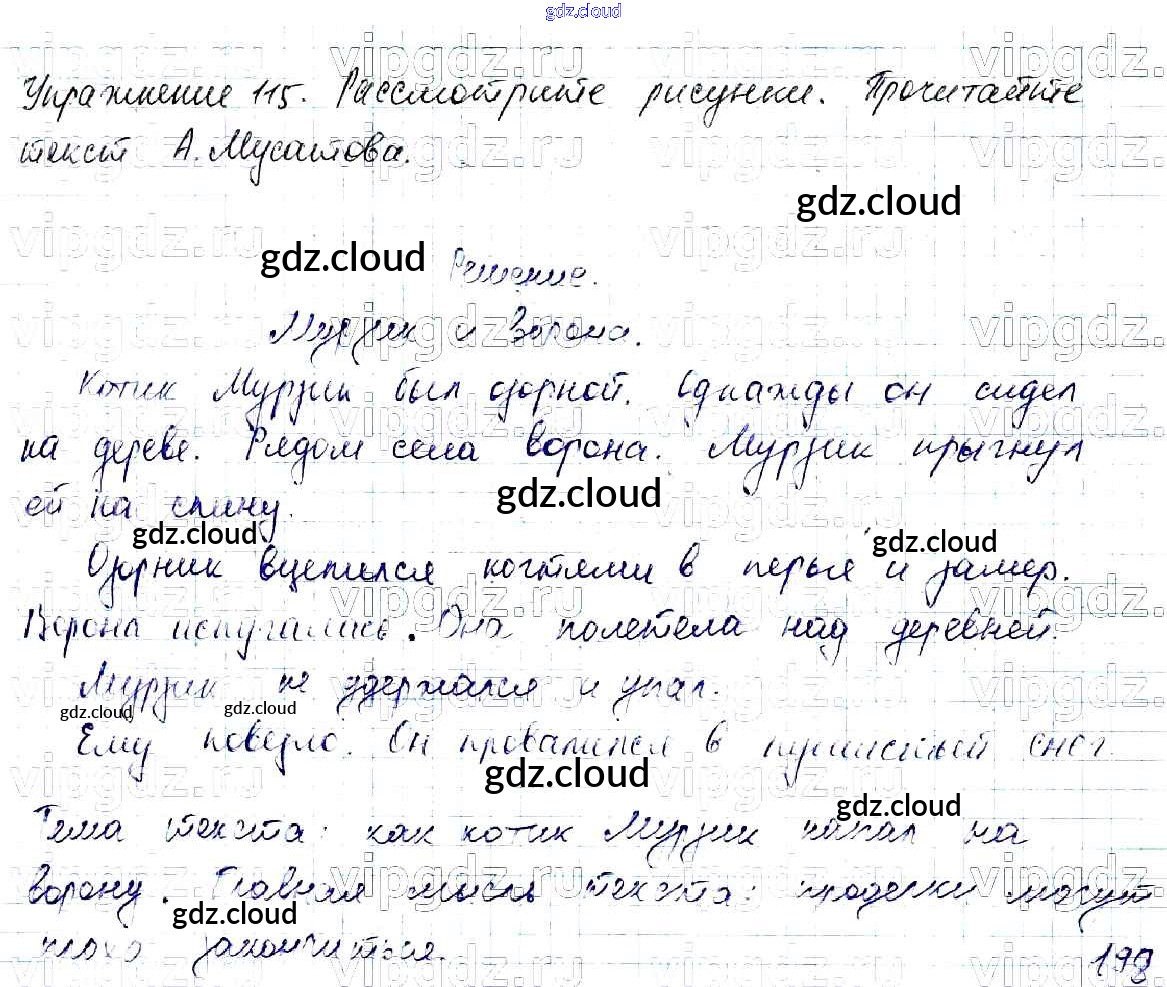 gdz.cloud
Упражнение 115. Рассмотрите рисунки. Прочитайте
текст А. Мусатова.
gdz.cloud
gdz.cloud
Решение.
Мурзик и ворона.
Котик Мурзик был озорной. Однажды он сидел
на дереве. Рядом села ворона. Мурзик прыгнул
ей на спину.
gdz.cloud
gdz.cloud
gdz.cloud
Озорник вцепился когтями в перья и замер.
Ворона испугалась. Она полетела над деревней.
Мурзик не удержался и упал.
gdz.cloud
gdz.cloud
Ему повезло. Он провалился в пушистый снег.
gdz.cloud
gdz.cloud
Тема текста: как котик Мурзик напал на
ворону. Главная мысль текста: проделки могут
gdz.cloud
плохо закончиться.
198